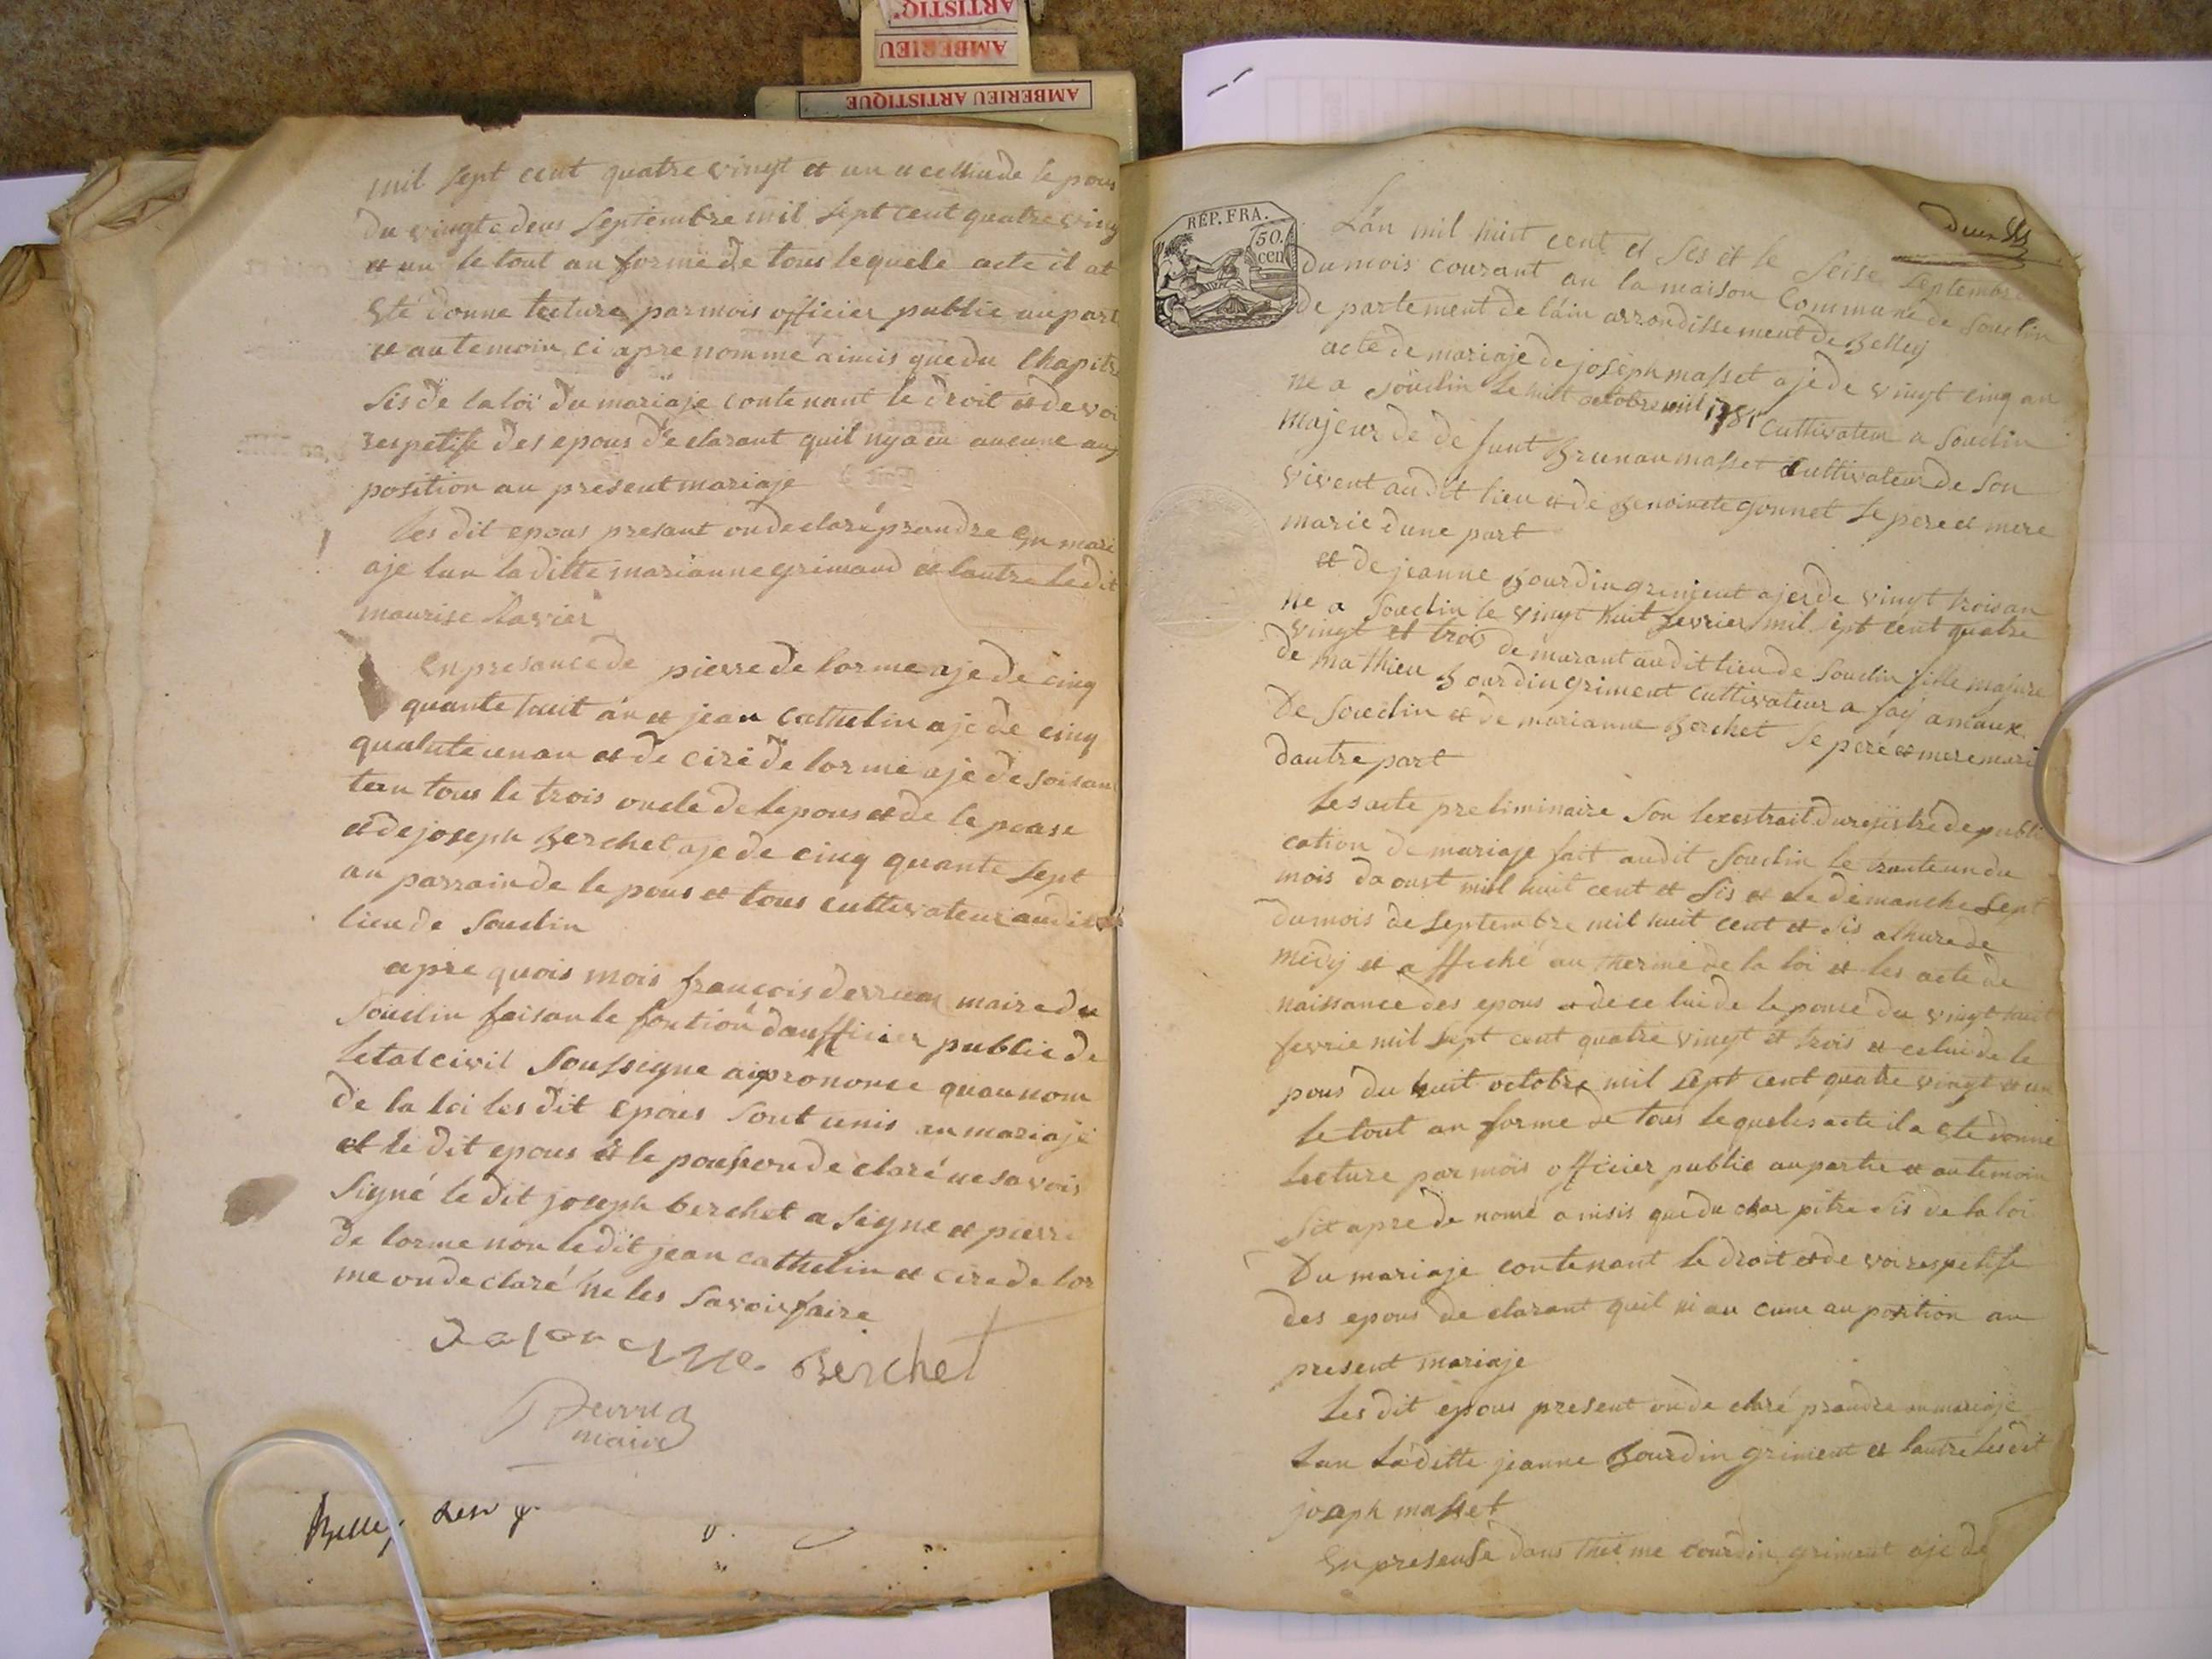 ARTISTIQ
AMBERIEU
AMBERIEU ARTISTIQUE
mil sept cent quatre vingt et un a celluide le pous
du vingt e deus septembre mil sept cent quatre ving
et un le tout an forme de tous lequele acte il at
Ete donne lecture par mois officier public au part
et au temoin ci apre nommé ainsis que du Chapitre
sis de la loi du mariaje contenant le droit et devoi
respetife des epous de clarant quil ny a eu aucune au
position au present mariaje
les dit epous presant on de claré prandre En mari
aje lun la ditte marianne grimand et lautre le dit
maurise Ravier
En presance de pierre de lorme aje de cinq
quante huit an et jean Cathelin aje de cinq
quatute un an et de ciré de lorme aje de soisan
tan tous le trois oncle de le pous et de le pouse
et de joseph Berchet aje de cinq quante sept
an parrain de le pous et tous cultivateur audit
lieu de Souclin
apre quois mois francois derruaz maire du
Souclin faisan le fontion daufficier public de
letat civil Soussigne ai prononce quau nom
de la loi les dit epous sont unis an mariaje
et le dit epous et le pouse on de claré ne savois
signé le dit joseph berchet a signe et pierre
de lorme non le dit jean cathelin et cire de lor
me on de claré ne les savoir faire
Delorme Berchet
maire
Belley
RÉP. FRA.
50.
cen
Lan mil huit cent et ses et le seise septembre
du mois courant an la maison Commune de Souclin
de partement de lain arrondissement de Belley
acte de mariaje de joseph masset aje de vingt cinq an
ne a Souclin le huit octobre mil 1781 Cultivateur a Souclin
majeur de de funt Brunau masset Cultivateur de son
vivent audit lieu et de Benoinete gonnet se pere et mere
marié dune part
et de jeanne Bourdin griment ajes de vingt trois an
ne a Souclin le vingt huit fevrier mil sept cent quatre
vingt et trois de murant au dit lieu de Souclin fille majure
de mathieu Bourdin griment cultivateur a faÿ amaux
De Souclin et de marianne Berchet se pere et mere mari
dautre part
les acte preliminaire son lexestrait du rejistre de publi
cation de mariaje fait audit Souclin le trante un du
mois da oust mil huit cent et sis et le dimanche sept
du mois de septembre mil huit cent et sis alhure de
midÿ et affiché au therme de la loi et les acte de
naissance des epous et de ce lui de le pouse du vingt huit
fevrie mil sept cent quatre vingt et trois et celui de le
pous du huit octobre mil sept cent quatre vingt et un
le tout an forme de tous le quels acte il a ete donné
lecture par mois officier public au partie et au temoin
Sit apre de nomé ainsis que du char pitre sis de la loi
Du mariaje contenant le droit et de voi respetife
des epous de clarant quil ni au cune au position au
present mariaje
les dit epous present on de claré prandre an mariaje
lun la ditte jeanne Bourdin griment et lautre les dit
joseph masset
En presense dans thieme bourdin griment aje de